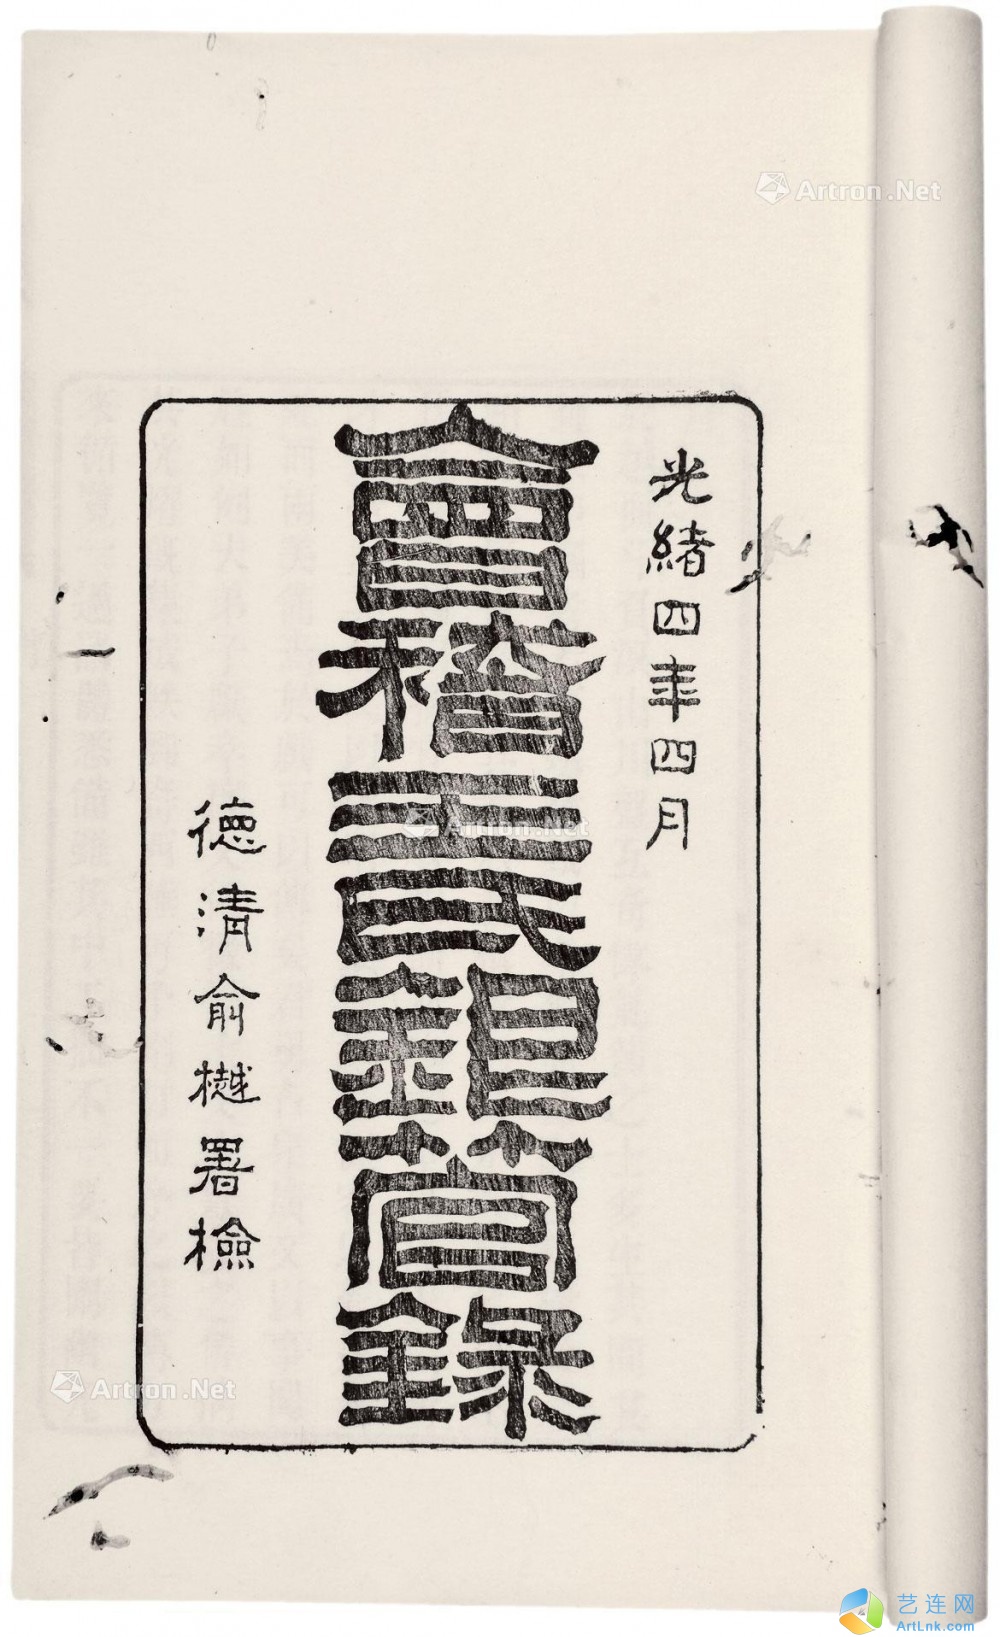 光緒四年四月
會稽王氏銀管錄
德清俞樾署檢
Artron.Net
Artron.Net
Artron.Net
艺连网
ArtLnk.com